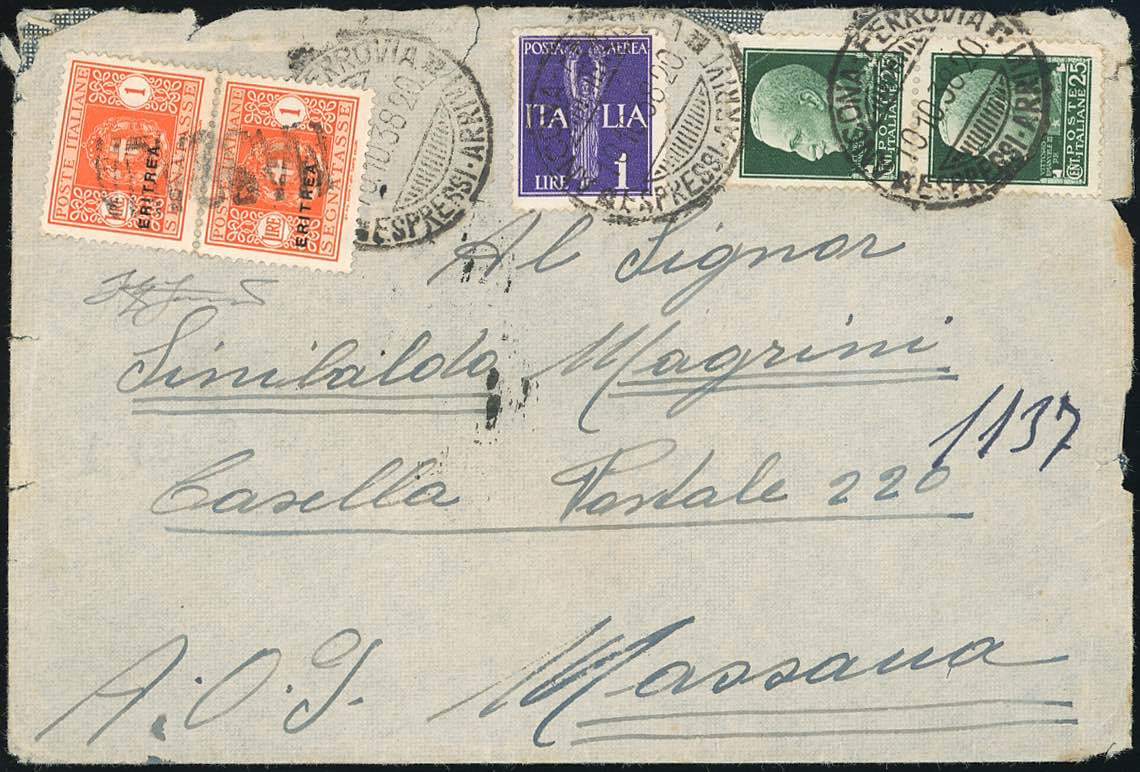 POSTE ITALIANE 1 SEGNATASSE LIRE ERITREA
POSTE ITALIANE 1 SEGNATASSE LIRE ERITREA
FERROVIA ARRIVI ESPRESSI 10-38 20
POSTA AEREA
ITALIA
LIRE 1
ARRIVI ESPRESSI
CENT. 25 POSTE ITALIANE
FERROVIA ARRIVI ESPRESSI 10-10-38 20
CENT. 25 POSTE ITALIANE
Al Signor
Sinibaldo Magrini
1137
Casella Postale 220
A.O.I. Massaua